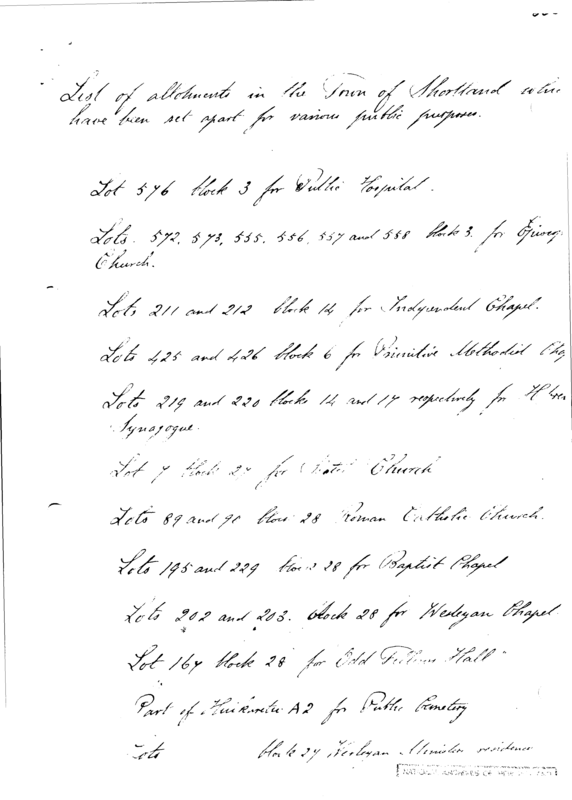 List of allotments in the Town of Shortland which
have been set apart for various public purposes.
Lot 576 block 3 for Public Hospital.
Lots. 572, 573, 555, 556, 557 and 558 block 3. for
Church.
Lots 211 and 212 block 14 for Independent Chapel.
Lots 425 and 426 block 6 for Primitive Methodist
Lots 219 and 220 blocks 14 and 17 respectively for
Synagogue.
Lot 7 block 27 for Church
Lots 89 and 90 block 28 Roman Catholic Church.
Lots 195 and 229 block 28 for Baptist Chapel
Lots 202 and 203. block 28 for Wesleyan Chapel
Lot 167 block 28 for Odd Fellows Hall
Part of A2 for Public Cemetery
Lots block 27 Wesleyan Minister residence
NATIONAL ARCHIVES OF NEW ZEALAND